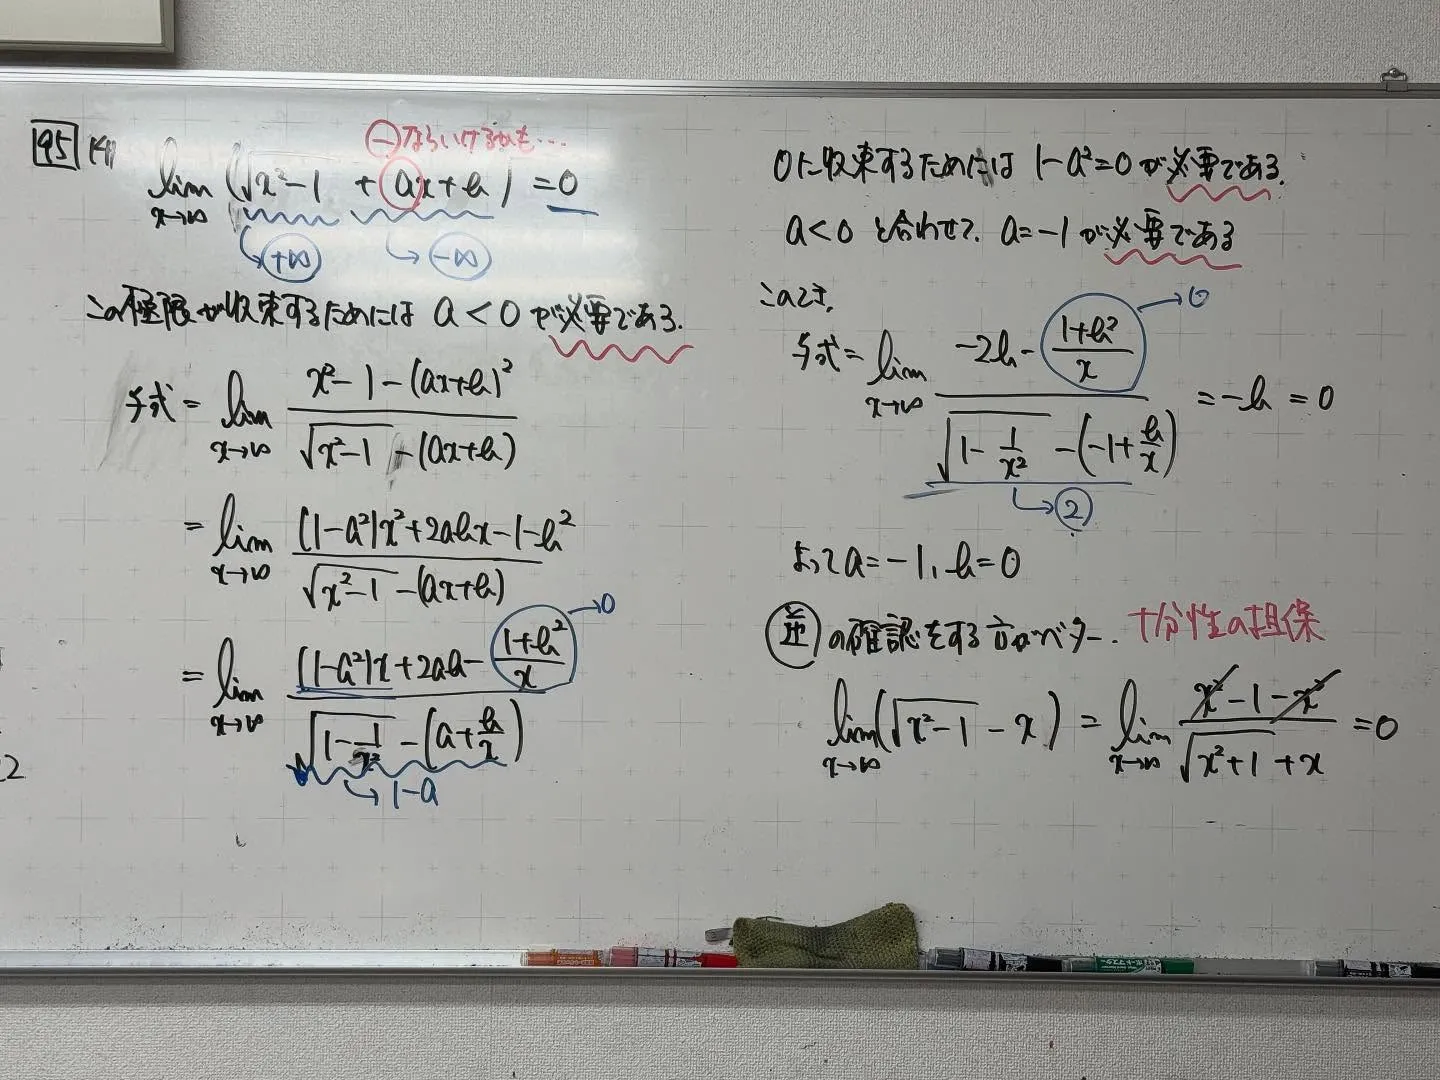 95 (4)
⊖ならいけるかも…
lim_{x→∞} (√(x²-1) + ax+b) = 0
→ +∞ → -∞
この極限が収束するためには a<0 が必要である.
与式 = lim_{x→∞} (x²-1-(ax+b)²)/(√(x²-1) - (ax+b))
= lim_{x→∞} ((1-a²)x²+2abx-1-b²)/(√(x²-1) - (ax+b))
= lim_{x→∞} ((1-a²)x+2ab-(1+b²)/x)/(√(1-1/x²) - (a+b/x))
→0
→ 1-a
0に収束するためには 1-a²=0 が必要である.
a<0 と合わせて, a=-1 が必要である
このとき,
与式 = lim_{x→∞} (-2b-(1+b²)/x)/(√(1-1/x²) - (-1+b/x)) = -b = 0
→0
→ 2
よって a=-1, b=0
逆の確認をする方がベター. 十分性の担保
lim_{x→∞} (√(x²-1) - x) = lim_{x→∞} (x²-1-x²)/(√(x²+1) + x) = 0
2